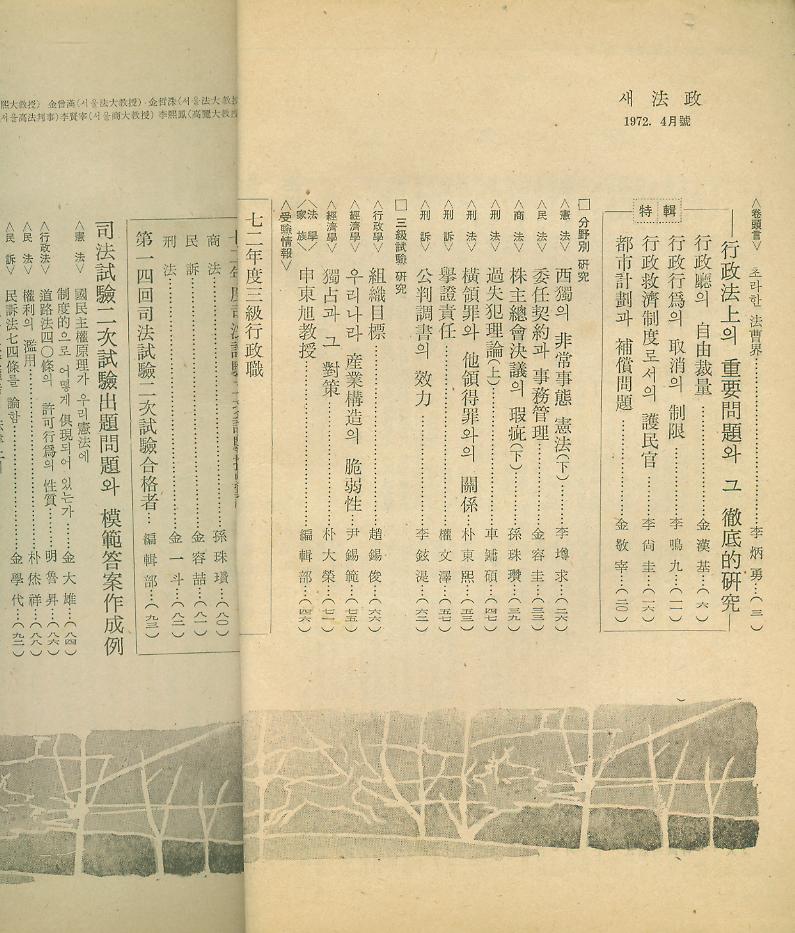 새 法 政
1972. 4月號
<卷頭言> 초라한 法曹界 李炳勇 (三)
行政法上의 重要問題와 그 徹底的硏究
特輯
行政廳의 自由裁量 金漢基 (六)
行政行爲의 取消의 制限 李鳴九 (一一)
行政救濟制度로서의 護民官 李尙圭 (一六)
都市計劃과 補償問題 金敬宰 (二〇)
□ 分野別 硏究
<憲法> 西獨의 非常事態 憲法(下) 李 求 (二六)
<民法> 委任契約과 事務管理 金容圭 (三三)
<商法> 株主總會決議의 瑕疵(下) 孫珠瓚 (三九)
<刑法> 過失犯理論(上) 車鏞碩 (四七)
<刑法> 橫領罪와 他領得罪와의 關係 朴東熙 (五三)
<刑訴> 擧證責任 權文澤 (五七)
<刑訴> 公判調書의 效力 李鉉湜 (六二)
□ 三級試驗 硏究
<行政學> 組織目標 趙錫俊 (六六)
<經濟學> 우리나라 産業構造의 脆弱性 尹錫範 (七五)
<經濟學> 獨占과 그 對策 朴大榮 (七一)
<法學家族> 申東旭敎授 編輯部 (四六)
<受驗情報>
七二年度三級行政職
商法 孫珠瓚 (八〇)
民訴 金容喆 (八一)
刑法 金一斗 (八二)
第一四回司法試驗二次試驗合格者 編輯部 (九三)
司法試驗二次試驗出題問題와 模範答案作成例
<憲法> 國民主權原理가 우리憲法에
制度的으로 어떻게 俱現되어 있는가 金大雄 (八四)
<行政法> 道路法四〇條의 許可行爲의 性質 明魯昇 (八六)
<民法> 權利의 濫用 朴 祥 (八八)
<民訴> 民訴法七四條를 論함 金學代 (九二)
熙大敎授) 金曾漢(서울法大敎授) 金哲洙(서울法大敎授
서울高法判事) 李賢宰(서울商大敎授) 李熙鳳(高麗大敎授